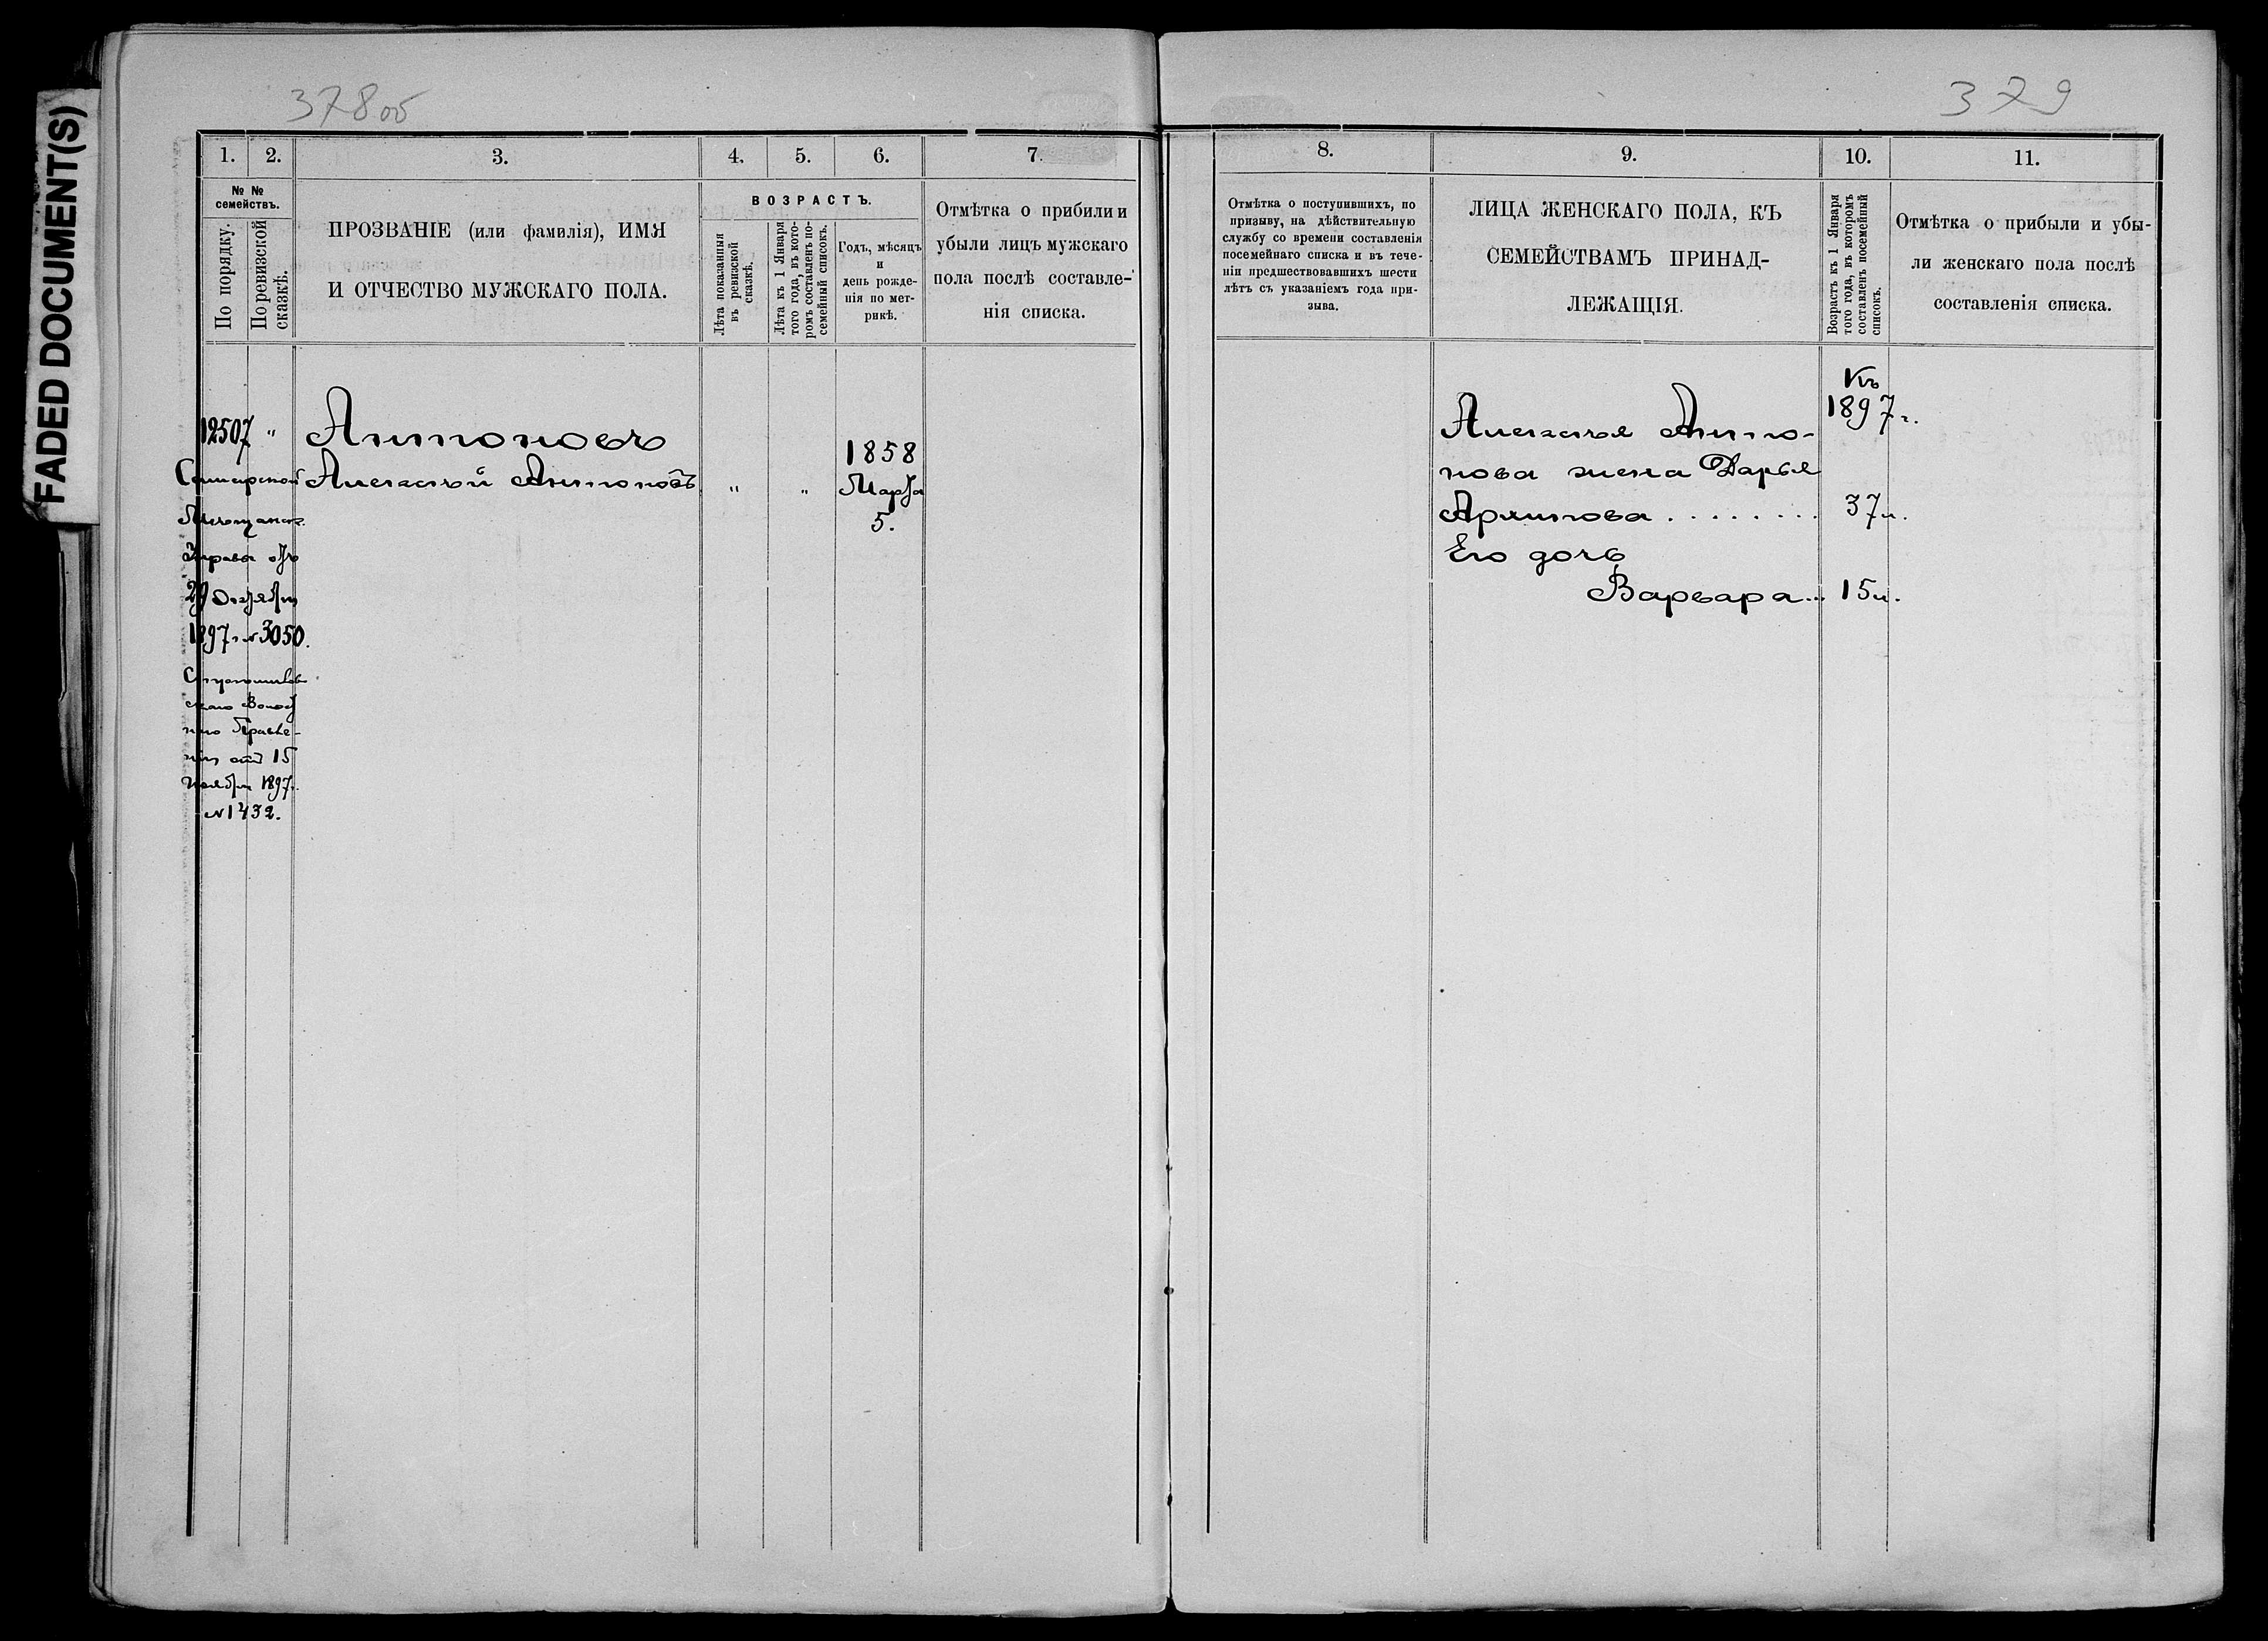 FADED DOCUMENT(S)
378 об
379
1.
2.
3.
4.
5.
6.
7.
№ №
семействъ.
По порядку.
По ревизской
сказкѣ.
ПРОЗВАНІЕ (или фамилія), ИМЯ
И ОТЧЕСТВО МУЖСКАГО ПОЛА.
ВОЗРАСТЪ.
Лѣта показанныя
въ ревизской
сказкѣ.
Лѣта къ 1 Января
того года, въ кото-
ромъ составленъ по-
семейный списокъ.
Годъ, мѣсяцъ
и
день рожде-
нія по мет-
рикѣ.
Отмѣтка о прибили и
убыли лицъ мужскаго
пола послѣ составле-
нія списка.
12507 "
Антоновъ
Самарской
Алексѣй Антоновъ
" "
1858
Марта
5.
Мѣщанск.
Управы отъ
29 Октября
1897 г. № 3050.
скаго Волост
наго Правле-
нія отъ 15
Ноября 1897 г.
№ 1432.
8.
9.
10.
11.
Отмѣтка о поступившихъ, по
призыву, на дѣйствительную
службу со времени составленія
посемейнаго списка и въ тече-
ніи предшествовавшихъ шести
лѣтъ съ указаніемъ года при-
зыва.
ЛИЦА ЖЕНСКАГО ПОЛА, КЪ
СЕМЕЙСТВАМЪ ПРИНАД-
ЛЕЖАЩІЯ.
Возрастъ къ 1 Января
того года, въ которомъ
составленъ посемейный
списокъ.
Отмѣтка о прибыли и убы-
ли женскаго пола послѣ
составленія списка.
Къ
1897 г.
Алексѣя Анто-
нова жена Дарья
Архипова . . . . . . . . 37 л.
Его дочь
Варвара... 15 л.